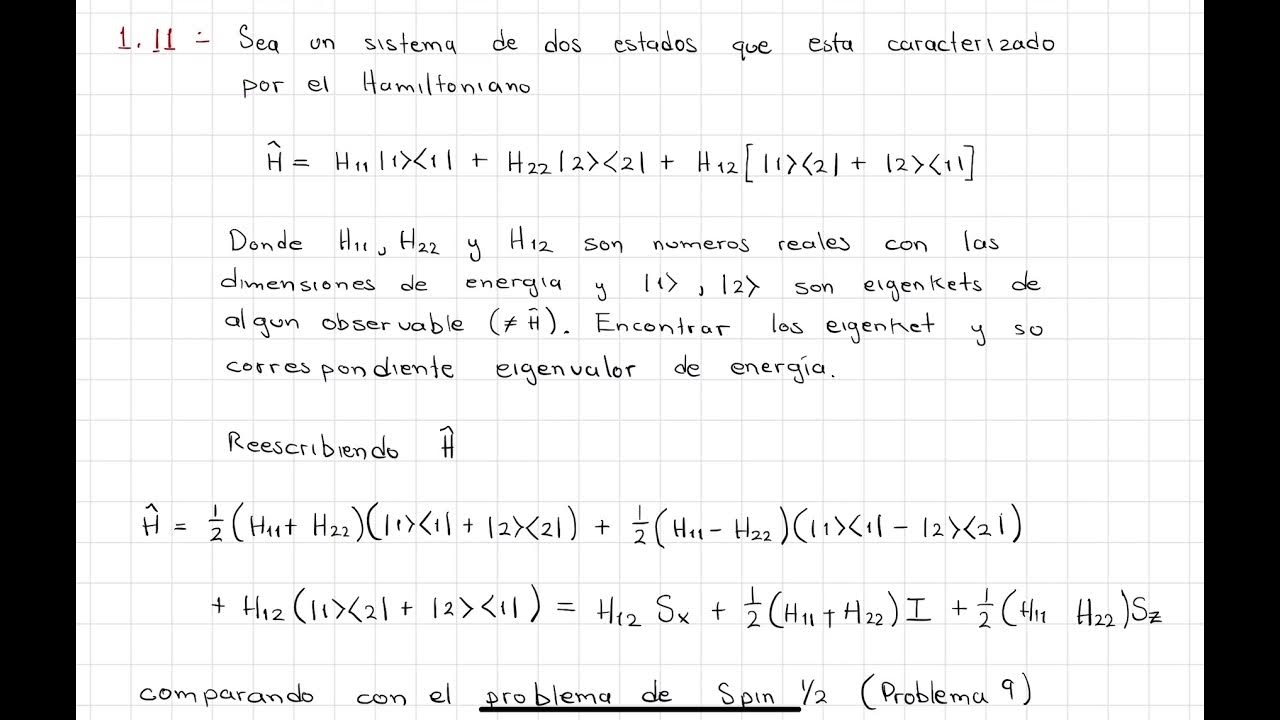 1.11 :- Sea un sistema de dos estados que esta caracterizado
por el Hamiltoniano
Ĥ = H₁₁|1><1| + H₂₂|2><2| + H₁₂[|1><2| + |2><1|]
Donde H₁₁, H₂₂ y H₁₂ son numeros reales con las
dimensiones de energia y |1>, |2> son eigenkets de
algun observable (≠ Ĥ). Encontrar los eigenket y so
correspondiente eigenvalor de energía.
Reescribiendo Ĥ
Ĥ = ½(H₁₁+ H₂₂)(|1><1| + |2><2|) + ½(H₁₁- H₂₂)(|1><1| - |2><2|)
+ H₁₂(|1><2| + |2><1|) = H₁₂ Sₓ + ½(H₁₁+H₂₂)I + ½(H₁₁ H₂₂)S_z
comparando con el problema de Spin ½ (Problema 9)